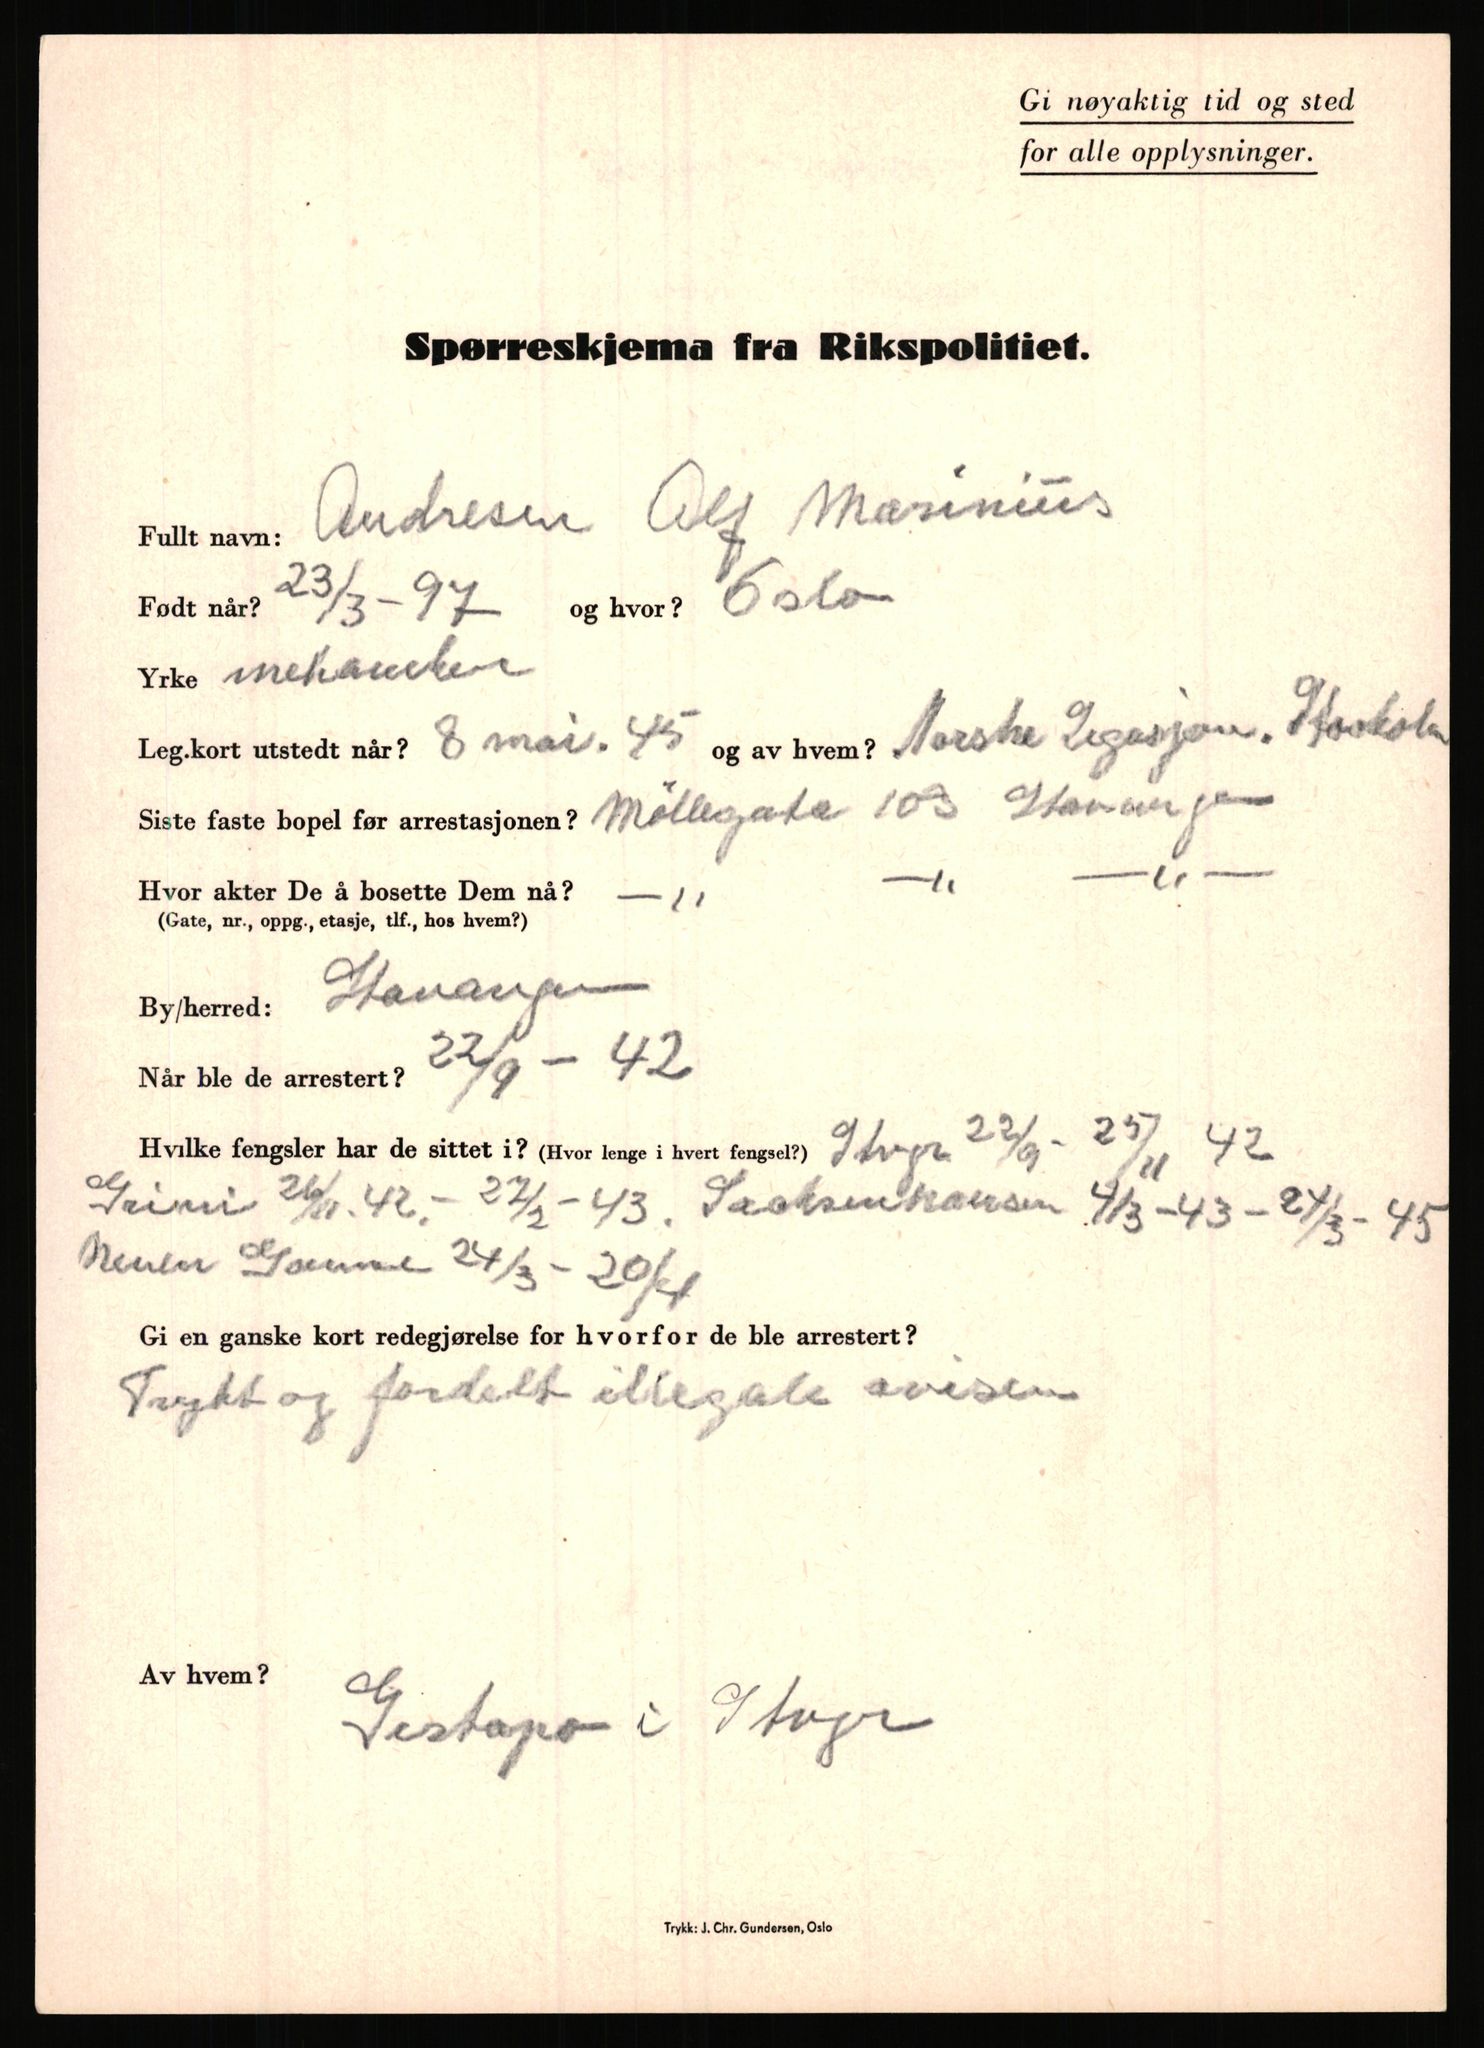 Gi nøyaktig tid og sted
for alle opplysninger.
Spørreskjema fra Rikspolitiet.
Fullt navn: Andresen Alf Marinius
Født når? 23/3 - 97 og hvor? Oslo
Yrke mekaniker
Leg.kort utstedt når? 8 mai. 45 og av hvem? Norske Legasjon. Stockholm
Siste faste bopel før arrestasjonen? Möllegata 103 Stavanger
Hvor akter De å bosette Dem nå? —"— —"— —"—
(Gate, nr., oppg., etasje, tlf., hos hvem?)
By/herred: Stavanger
Når ble de arrestert? 22/9 - 42
Hvilke fengsler har de sittet i? (Hvor lenge i hvert fengsel?) Stvgr 22/9 - 25/11 42
Grini 26/11. 42. - 27/2 - 43. Sachsenhausen 4/3 - 43 - 24/3 - 45
Neuen Gamme 24/3 - 20/4
Gi en ganske kort redegjørelse for hvorfor de ble arrestert?
Trykt og fordelt illegale aviser
Av hvem? Gestapo i Stvgr
Trykk: J. Chr. Gundersen, Oslo